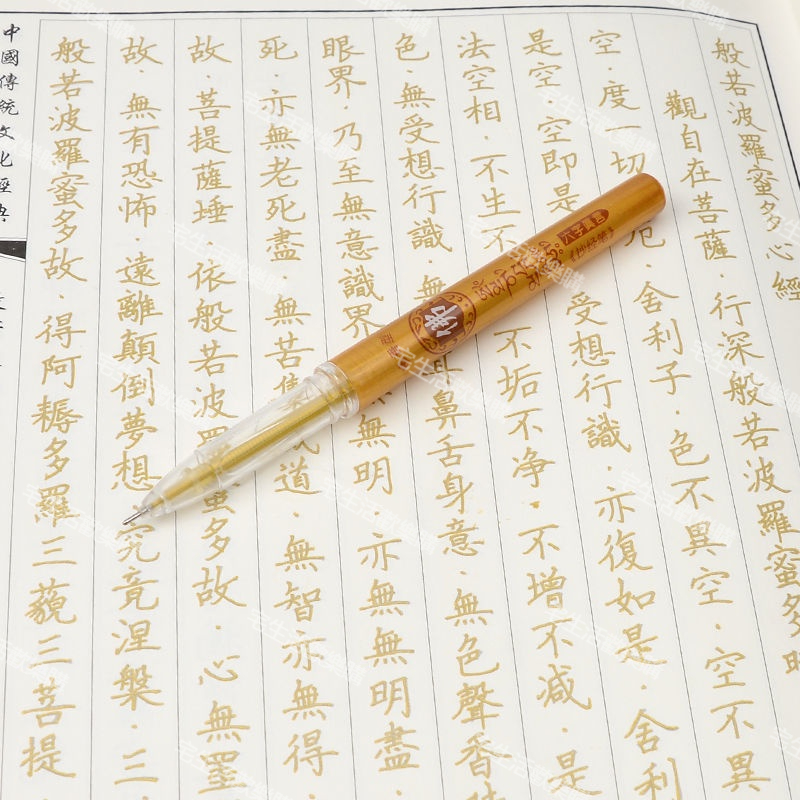 般若波羅蜜多心經
觀自在菩薩·行深般若波羅蜜多時
空·度一切厄·舍利子·色不異空·空不異
是空 空即是受想行識·亦復如是·舍利
法空相·不生不不垢不净·不增不减·是
色·無受想行識·無鼻舌身意·無色聲香
眼界·乃至無意識界無明 亦無無明盡
死·亦無老死盡·無苦道·無智亦無得
故·菩提薩埵 依般若波蜜多故·心無罣
故·無有恐怖·遠離顛倒夢想 究竟涅槃·三
般若波羅蜜多故·得阿耨多羅三藐三菩提
中國傳統文化經典
《抄经笔》
佛